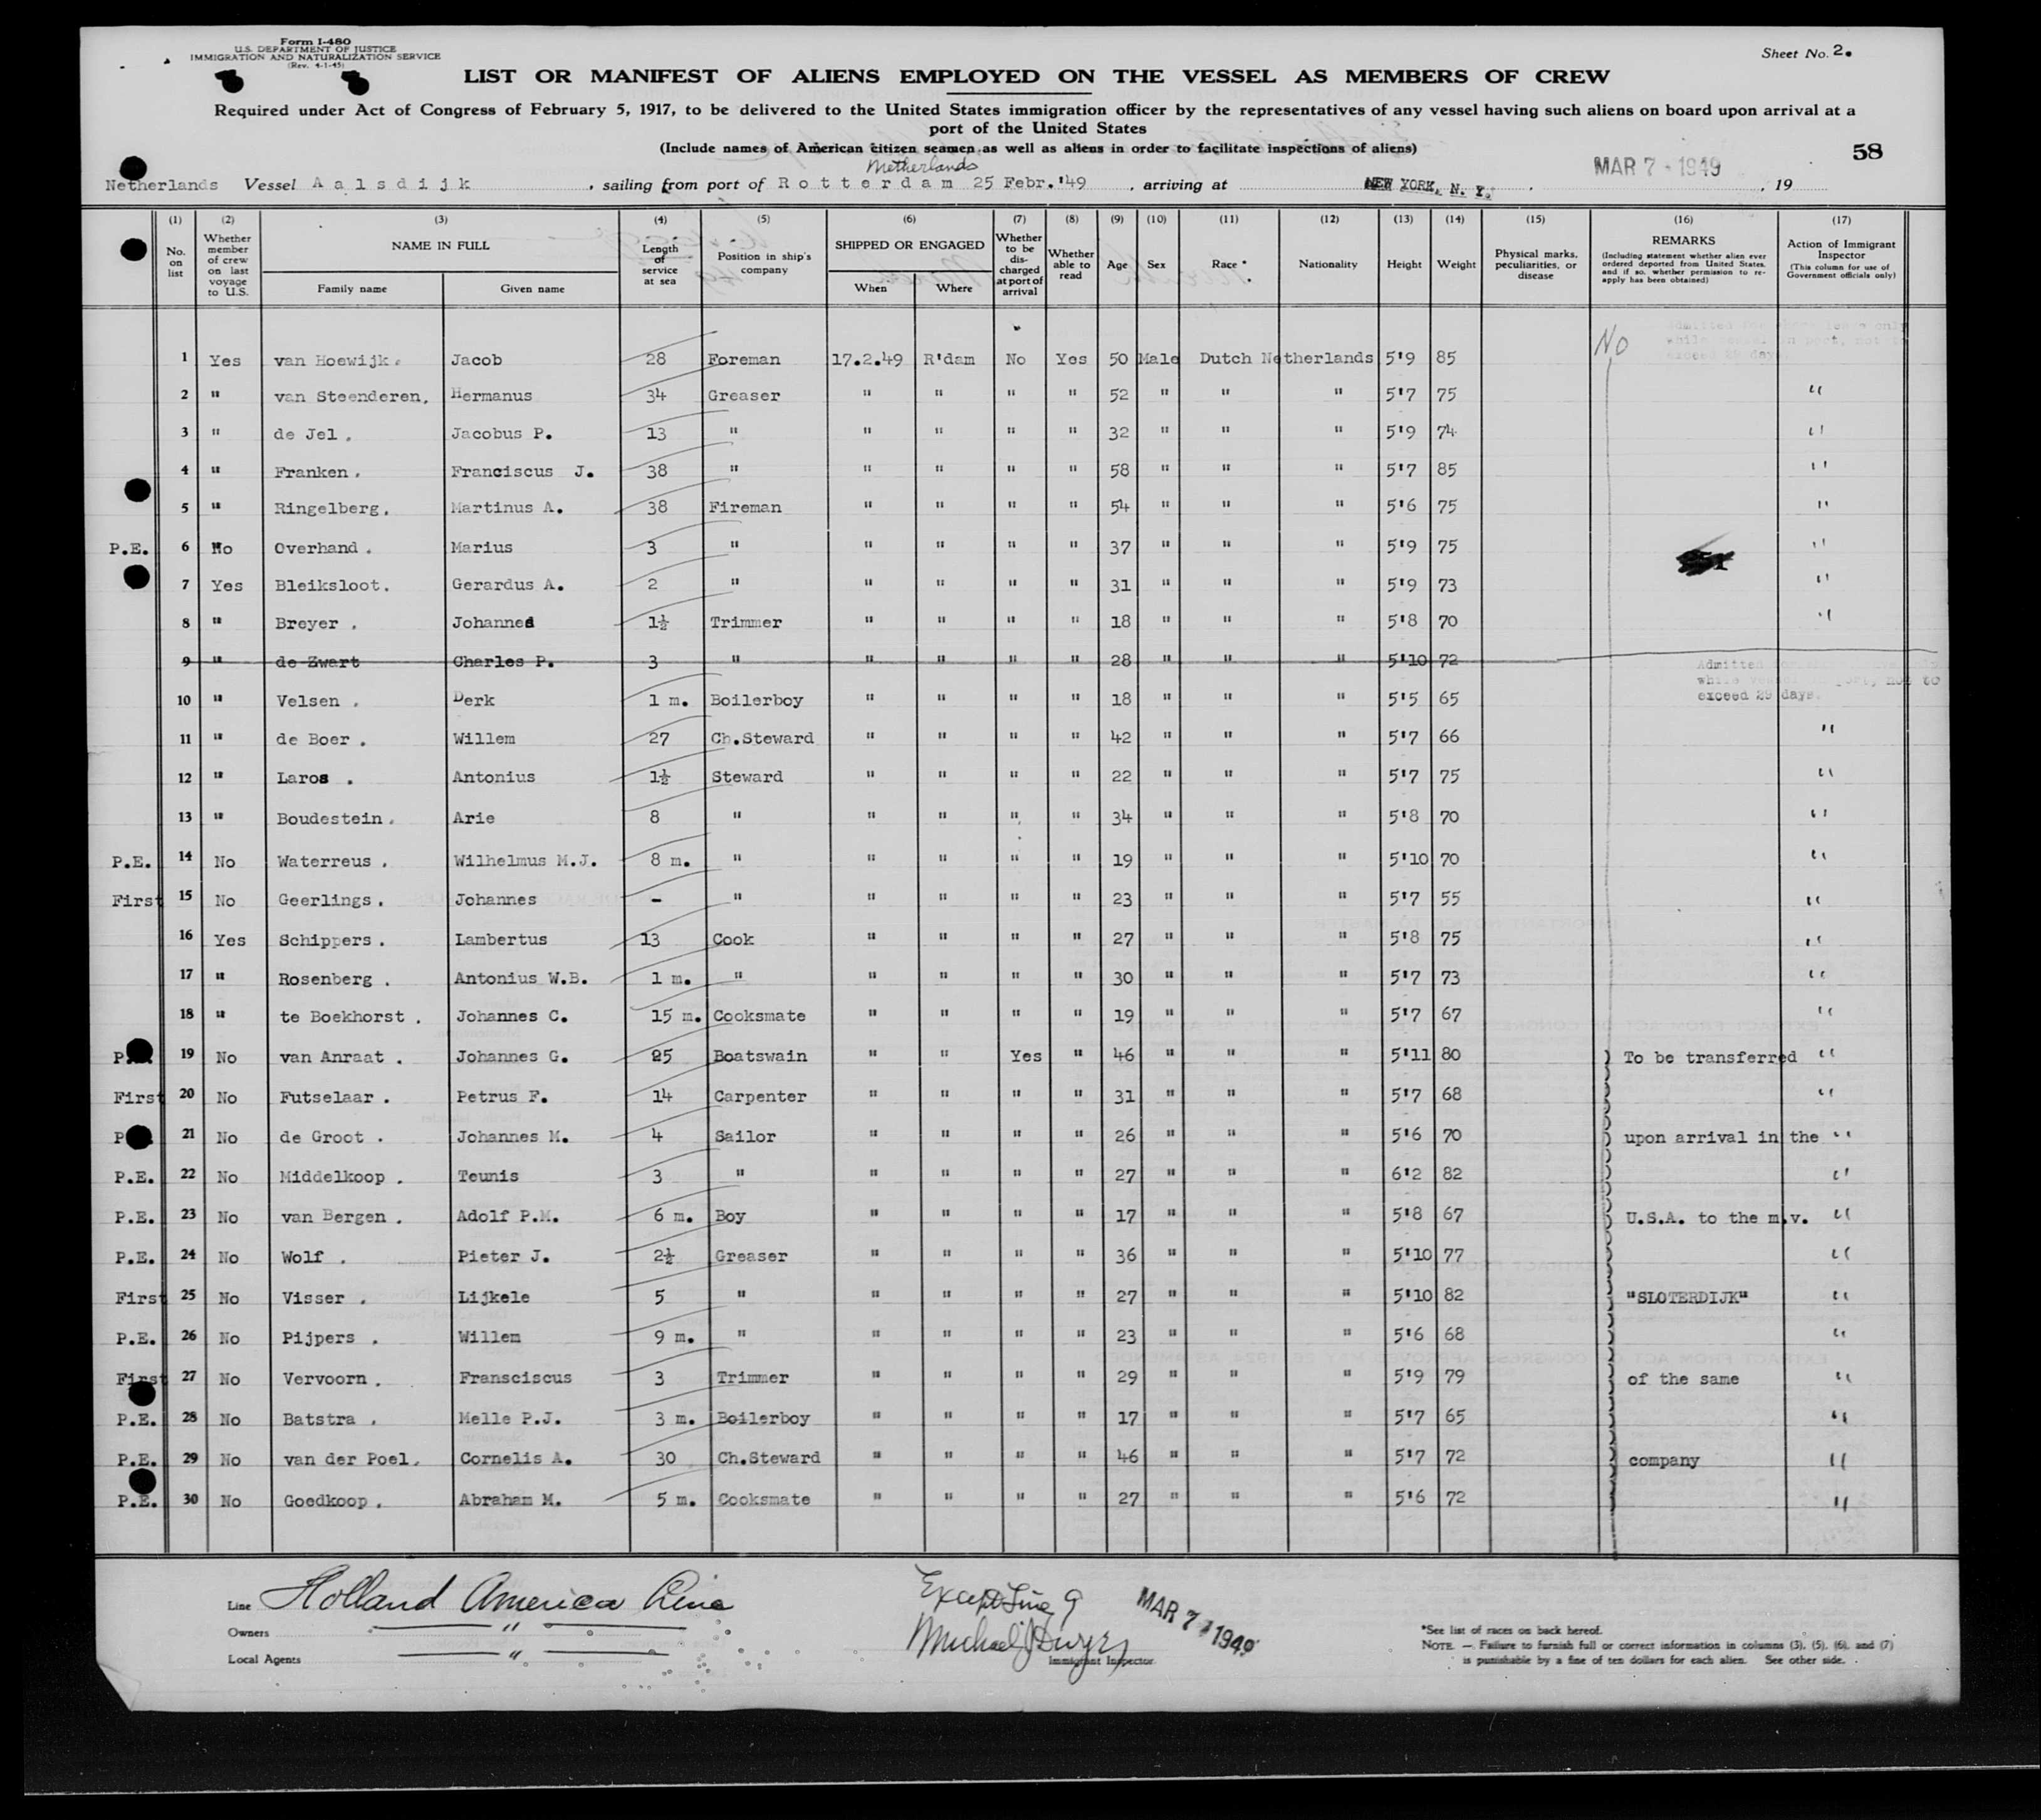 Form I-480
U.S. DEPARTMENT OF JUSTICE
IMMIGRATION AND NATURALIZATION SERVICE
(Rev. 4-1-45)
Sheet No. 2.
LIST OR MANIFEST OF ALIENS EMPLOYED ON THE VESSEL AS MEMBERS OF CREW
Required under Act of Congress of February 5, 1917, to be delivered to the United States immigration officer by the representatives of any vessel having such aliens on board upon arrival at a
port of the United States
(Include names of American citizen seamen as well as aliens in order to facilitate inspections of aliens)
58
Netherlands
MAR 7 - 1949
Netherlands Vessel Aalsdijk, sailing from port of Rotterdam 25 Febr.'49, arriving at NEW YORK, N. Y., 19
(1) (2) (3) (4) (5) (6) (7) (8) (9) (10) (11) (12) (13) (14) (15) (16) (17)
No. on list Whether member of crew on last voyage to U.S. NAME IN FULL Family name Given name Length of service at sea Position in ship's company SHIPPED OR ENGAGED When Where Whether to be discharged at port of arrival Whether able to read Age Sex Race * Nationality Height Weight Physical marks, peculiarities, or disease REMARKS (Including statement whether alien ever ordered deported from United States, and if so, whether permission to reapply has been obtained) Action of Immigrant Inspector (This column for use of Government officials only)
1 Yes van Hoewijk. Jacob 28 Foreman 17.2.49 R'dam No Yes 50 Male Dutch Netherlands 5'9 85 No
2 " van Steenderen, Hermanus 34 Greaser " " " " 52 " " " 5'7 75 "
3 " de Jel. Jacobus P. 13 " " " " " 32 " " " 5'9 74 "
4 " Franken. Franciscus J. 38 " " " " " 58 " " " 5'7 85 "
5 " Ringelberg. Martinus A. 38 Fireman " " " " 54 " " " 5'6 75 "
P.E. 6 No Overhand. Marius 3 " " " " " 37 " " " 5'9 75 "
7 Yes Bleiksloot. Gerardus A. 2 " " " " " 31 " " " 5'9 73 "
8 " Breyer. Johannes 1½ Trimmer " " " " 18 " " " 5'8 70 "
9 " de Zwart Charles P. 3 " " " " " 28 " " " 5'10 72
Admitted
while
exceed 29 days.
10 " Velsen. Derk 1 m. Boilerboy " " " " 18 " " " 5'5 65
11 " de Boer. Willem 27 Ch.Steward " " " " 42 " " " 5'7 66 "
12 " Laros. Antonius 1½ Steward " " " " 22 " " " 5'7 75 "
13 " Boudestein. Arie 8 " " " " " 34 " " " 5'8 70 "
P.E. 14 No Waterreus. Wilhelmus M.J. 8 m. " " " " " 19 " " " 5'10 70 "
First 15 No Geerlings. Johannes - " " " " " 23 " " " 5'7 55 "
16 Yes Schippers. Lambertus 13 Cook " " " " 27 " " " 5'8 75 "
17 " Rosenberg. Antonius W.B. 1 m. " " " " " 30 " " " 5'7 73 "
18 " te Boekhorst. Johannes C. 15 m. Cooksmate " " " " 19 " " " 5'7 67 "
19 No van Anraat. Johannes G. 25 Boatswain " " Yes " 46 " " " 5'11 80 To be transferred "
First 20 No Futselaar. Petrus F. 14 Carpenter " " " " 31 " " " 5'7 68 "
21 No de Groot. Johannes M. 4 Sailor " " " " 26 " " " 5'6 70 upon arrival in the "
P.E. 22 No Middelkoop. Teunis 3 " " " " " 27 " " " 6'2 82 "
P.E. 23 No van Bergen. Adolf P.M. 6 m. Boy " " " " 17 " " " 5'8 67 U.S.A. to the m.v. "
P.E. 24 No Wolf. Pieter J. 2½ Greaser " " " " 36 " " " 5'10 77 "
First 25 No Visser. Lijkele 5 " " " " " 27 " " " 5'10 82 "SLOTERDIJK" "
P.E. 26 No Pijpers. Willem 9 m. " " " " " 23 " " " 5'6 68 "
First 27 No Vervoorn. Fransciscus 3 Trimmer " " " " 29 " " " 5'9 79 of the same "
P.E. 28 No Batstra. Melle P.J. 3 m. Boilerboy " " " " 17 " " " 5'7 65 "
P.E. 29 No van der Poel. Cornelis A. 30 Ch.Steward " " " " 46 " " " 5'7 72 company "
P.E. 30 No Goedkoop. Abraham M. 5 m. Cooksmate " " " " 27 " " " 5'6 72 "
Line Holland America Line
Owners "
Local Agents "
Except Line 9
Michael J Dwyer
Immigrant Inspector
MAR 7 1949
*See list of races on back hereof.
NOTE.—Failure to furnish full or correct information in columns (3), (5), (6), and (7)
is punishable by a fine of ten dollars for each alien. See other side.